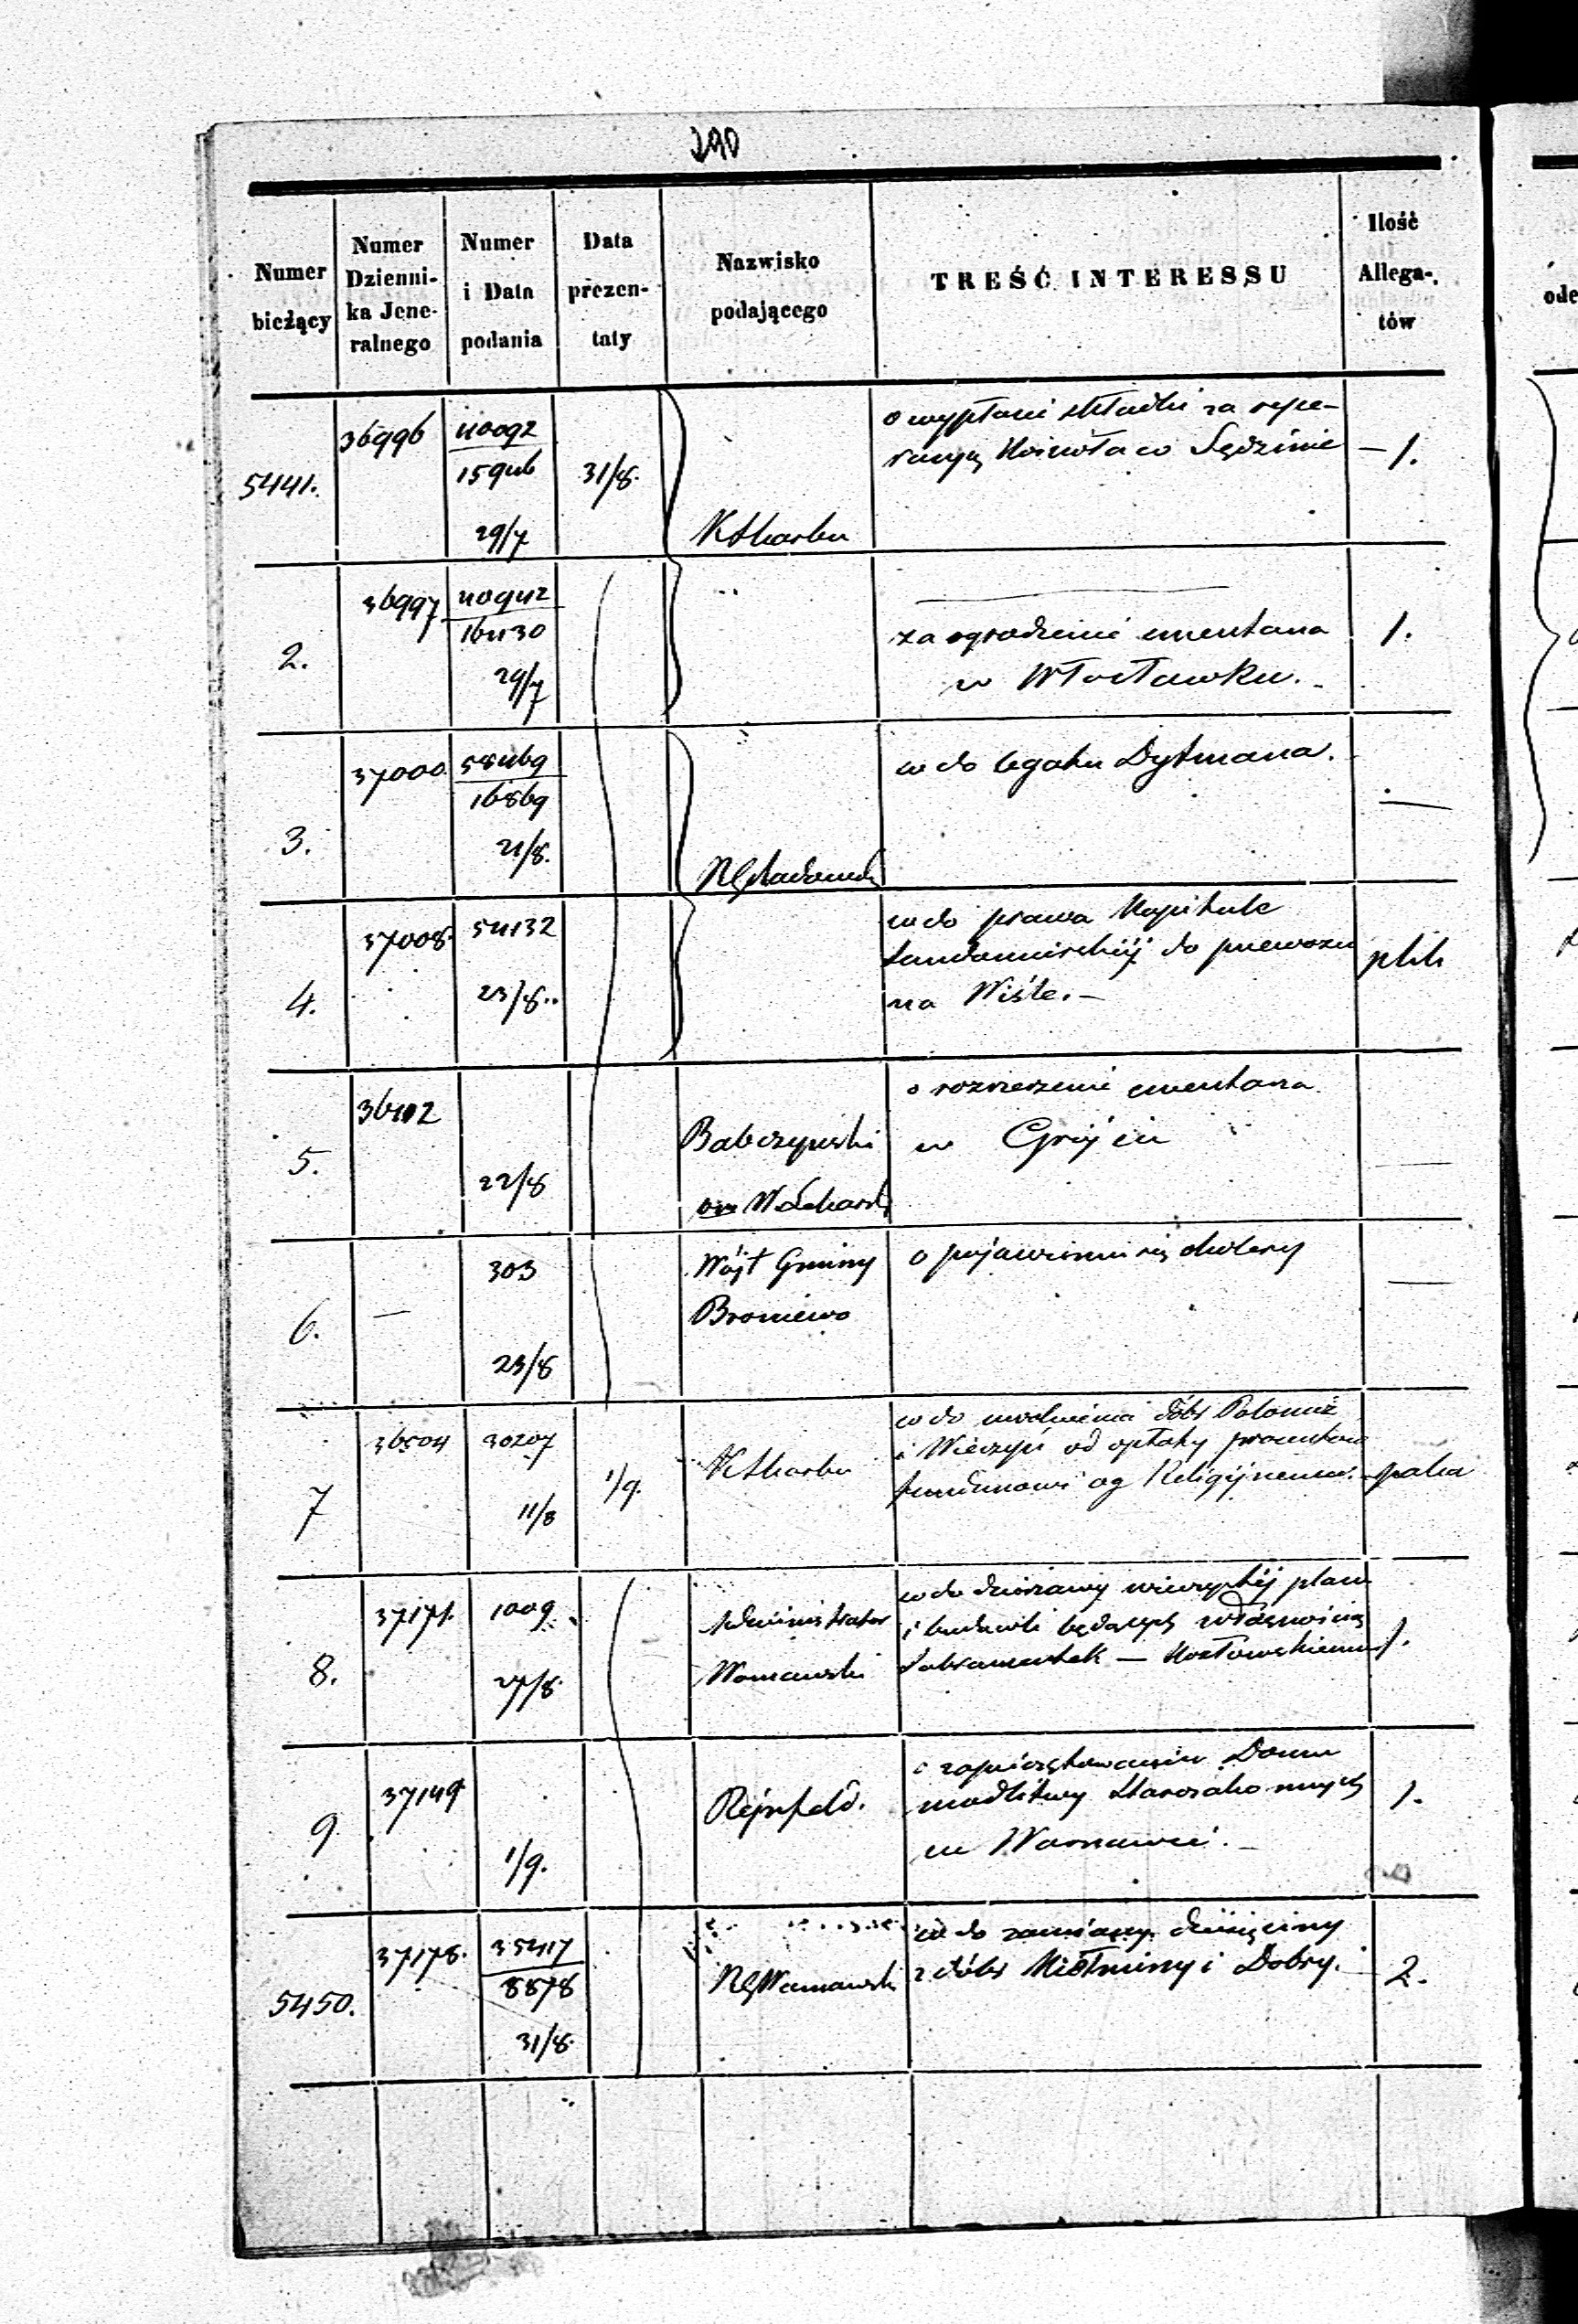 290
Numer bieżący
Numer Dzienni- ka Jene- ralnego
Numer i Data podania
Data prezen- taty
Nazwisko podającego
TREŚĆ INTERESSU
Ilość Allega- tów
5441.
36996
40092
15946
29/7
31/8.
KSkarbu
o wypłacie składki za repe-
racyą Kościoła w Sędzinie
1.
2.
36997
40942
16430
29/7
za ogrodzenie cmentarza
w Włocławku.
1.
3.
37000
58469
16869
21/8.
co do legatu Dytmana.
4.
37008.
54132
23/8.
co do prawa Kapituły
Sandomirskiéj do przewozu
na Wiśle.
plik
5.
36402
22/8
Babczyński
o rozszerzenie cmentarza
w Grójcu
6.
303
23/8
Wójt Gminy
Broniewo
o pojawieniu się cholery
7
36504
30207
11/8
1/9.
KSkarbu
co do uwolnienia dóbr
i od opłaty procentów
Religijnemu.
paka
8.
37171.
1009
27/8.
Administrator
Warszawski
co do dzierżawy wieczystéj placu
i będących własnością
1.
9
37149
1/9.
Rejnfeld.
o zapieczętowaniu Domu
modlitwy Starozakonnych
w Warszawie.
1.
5450.
37178.
35417
8878
31/8.
RGWarszawski
co do zamiany dziesięciny
z dóbr i Dobry.
2.